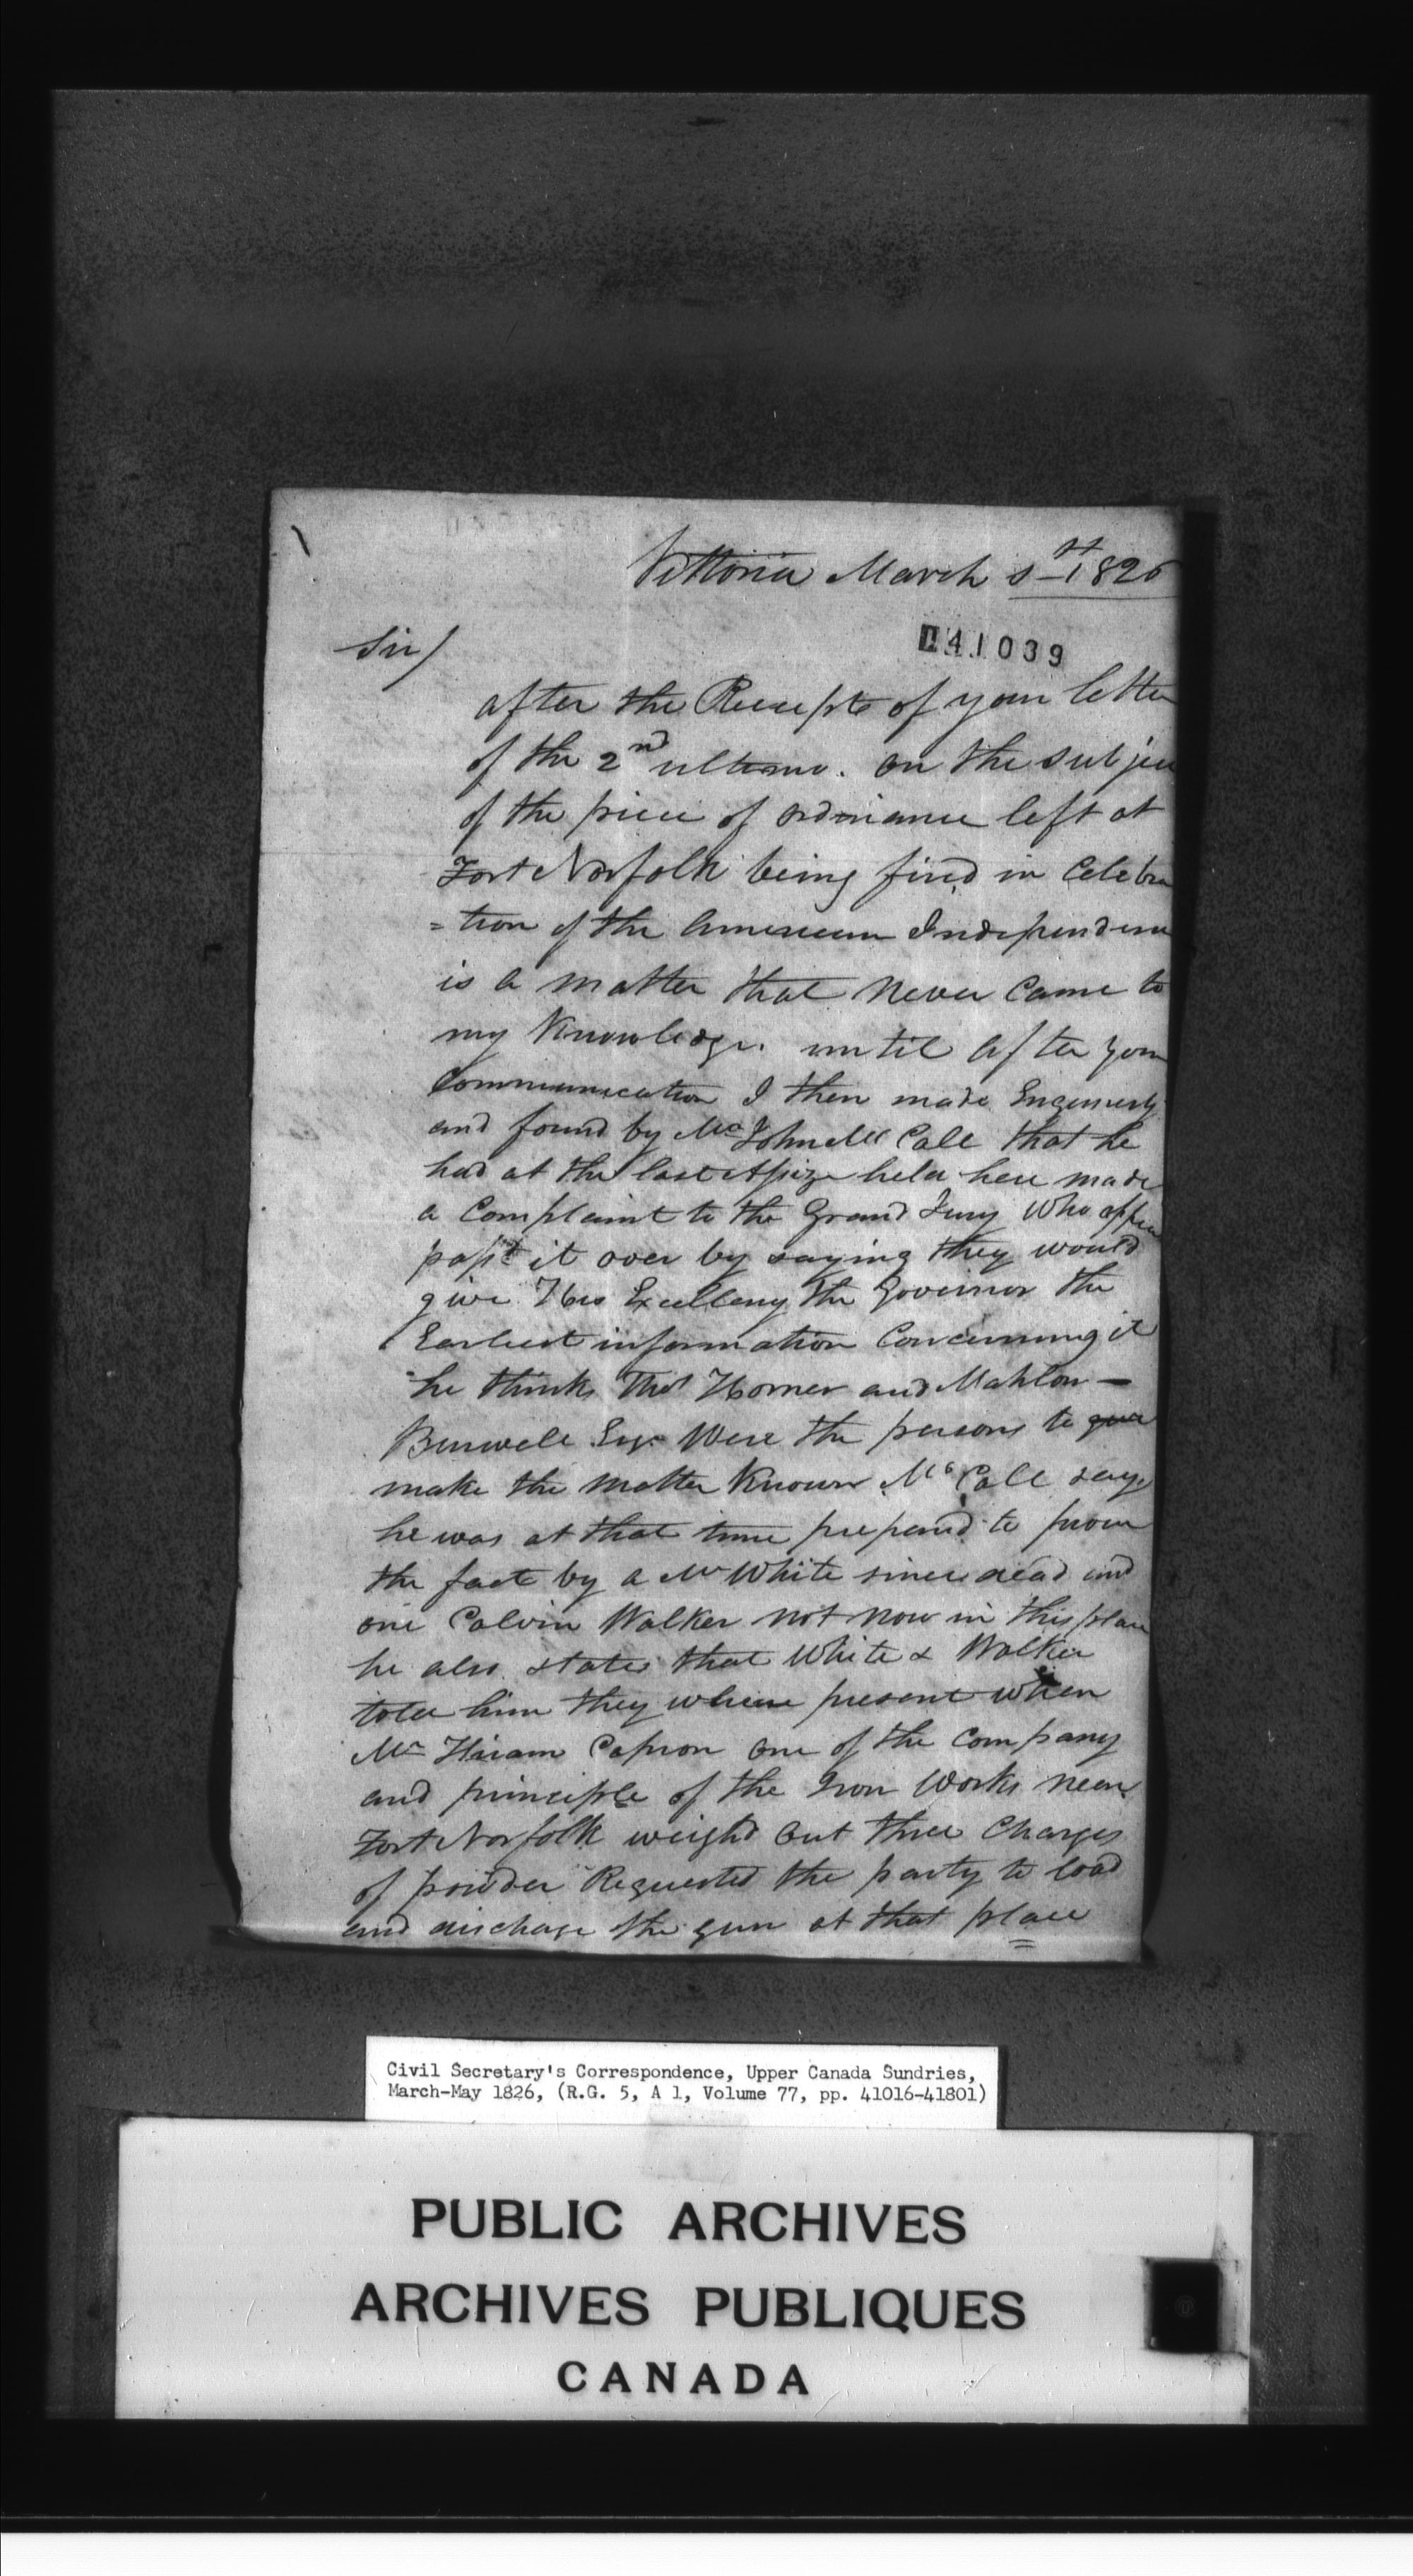 Vittoria March 1826
041039
Sir/
after the Receipts of your letter
of the 2nd ultimo. on the subjec
of the piece of ordinance left at
Fort Norfolk being fired in Celebra
=tion of the American Independenc
is a matter that never Came to
my Knowledge. until after your
Communication I then made
and found by Mr John Mc Call that he
had at the last Assize held here made
a Complaint to the Grand Jury Who
passt it over by saying they would
give His Excellency the Governor the
Earliest information Concerning it
he thinks Thos Horner and Mahlon —
Burwell Esqr Were the persons to give
make the matter Known Mc Call says
he was at that time prepared to prove
the fact by a Mr White since dead and
one Calvin Walker not now in this place
he also states that White & Walker
told him they where present when
Mr Hiram Capron one of the Company
and principle of the Iron Works near
Fort Norfolk weighd out three Charges
of powder Requested the party to load
and discharge the gun at that place
Civil Secretary's Correspondence, Upper Canada Sundries,
March-May 1826, (R.G. 5, A 1, Volume 77, pp. 41016-41801)
PUBLIC ARCHIVES
ARCHIVES PUBLIQUES
CANADA